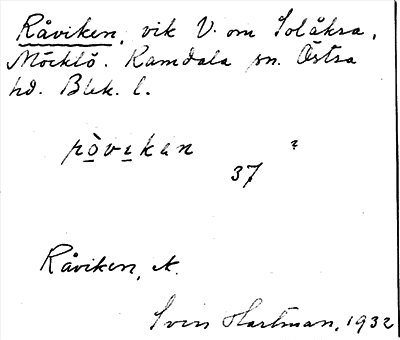 Råviken, vik V. om Solåkra,
Möcklö. Ramdala sn. Östra
hd. Blek. l.
rȯ̀vikan ?
37
Råviken, A.
Sven Hartman, 1932